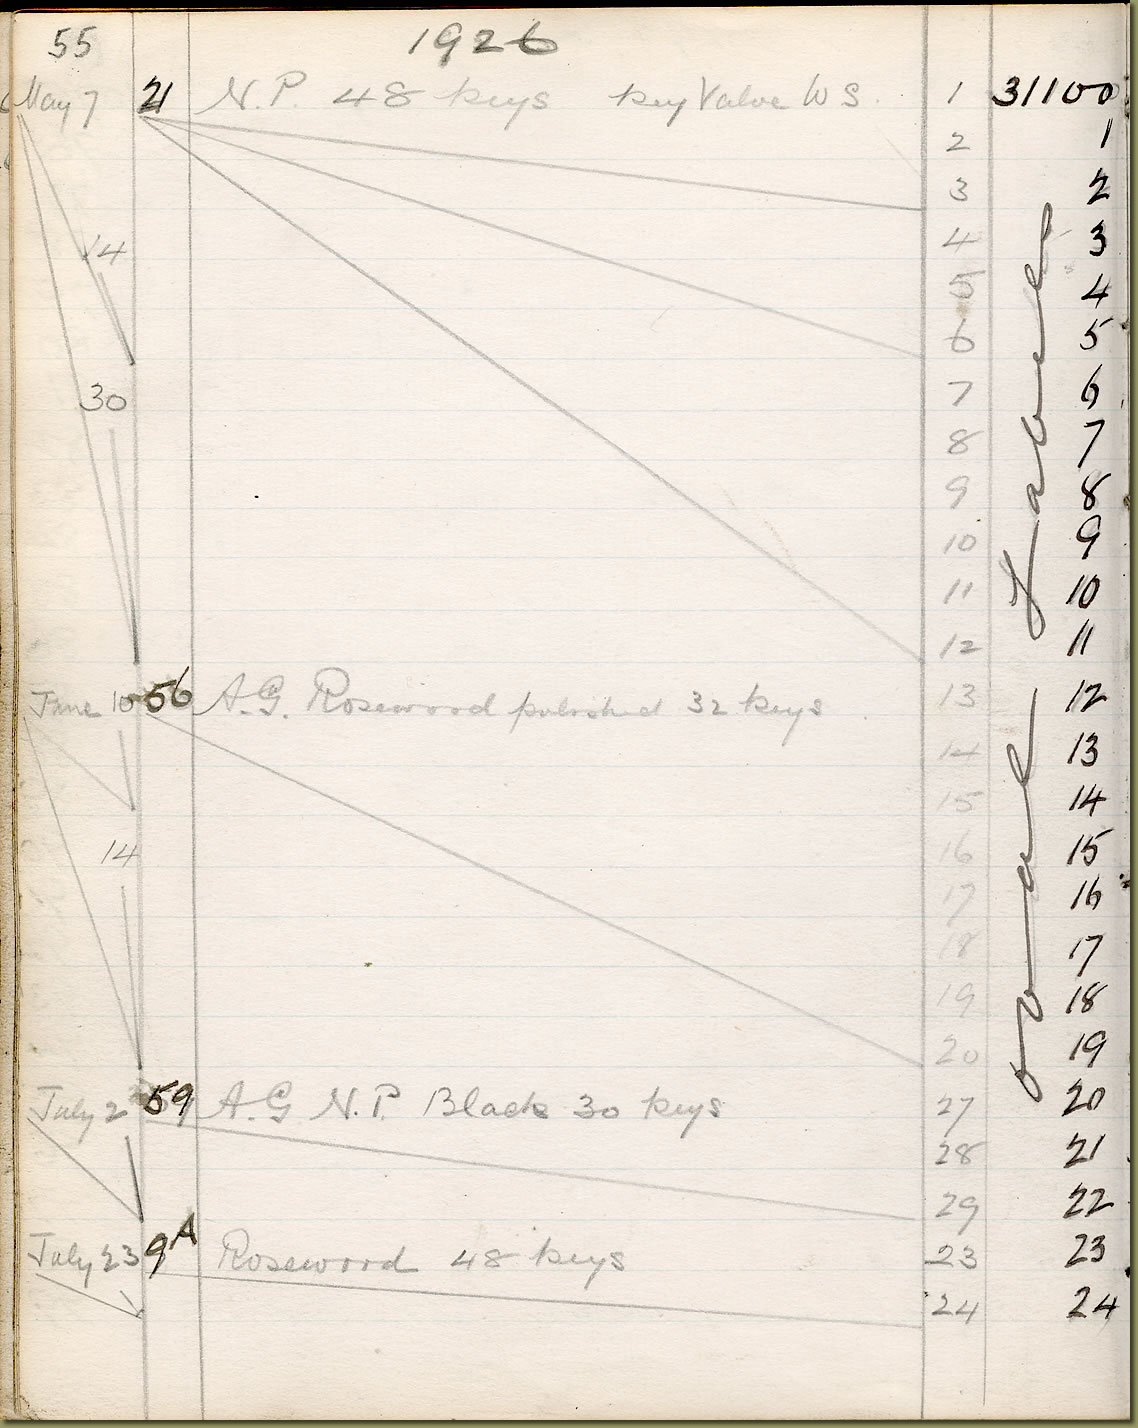 55 1926
May 7 21 N.P. 48 keys key Valve W S. 1 31100
2 1
3 2
14 4 3
5 4
6 5
30 7 6
8 7
9 8
10 9
11 10
12 11
June 10 56 A.G. Rosewood polished 32 keys 13 12
14 13
15 14
14 16 15
17 16
18 17
19 18
20 19
July 2 59 A.G N.P. Black 30 keys 27 20
28 21
29 22
July 23 9A Rosewood 48 keys 23 23
24 24
oval Label